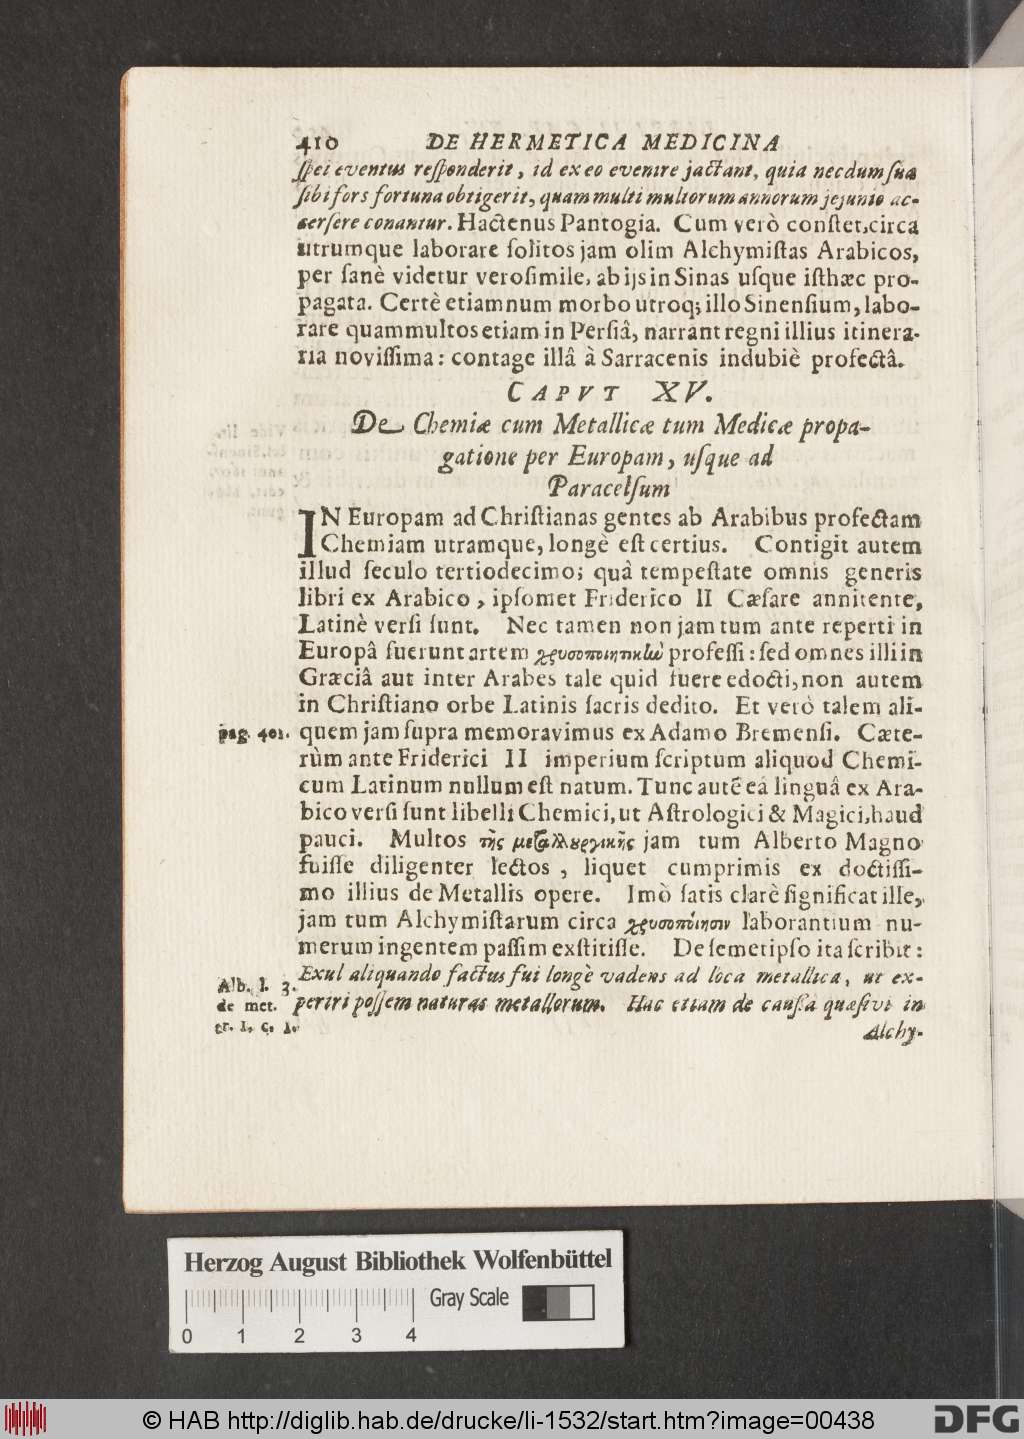 410 DE HERMETICA MEDICINA
ſpei eventus reſponderit, id ex eo evenire jactant, quia necdum ſua
ſibi fors fortuna obtigerit, quam multi multorum annorum jejunio ac-
cerſere conantur. Hactenus Pantogia. Cum verò conſtet, circa
utrumque laborare ſolitos jam olim Alchymiſtas Arabicos,
per ſanè videtur veroſimile, ab ijs in Sinas uſque iſthæc pro-
pagata. Certè etiamnum morbo utroq; illo Sinenſium, labo-
rare quammultos etiam in Perſiâ, narrant regni illius itinera-
ria noviſſima: contage illâ à Sarracenis indubiè profectâ.
CAPVT XV.
De Chemiæ cum Metallicæ tum Medicæ propa-
gatione per Europam, uſque ad
Paracelſum
IN Europam ad Chriſtianas gentes ab Arabibus profectam
Chemiam utramque, longè eſt certius. Contigit autem
illud ſeculo tertiodecimo; quâ tempeſtate omnis generis
libri ex Arabico, ipſomet Friderico II Cæſare annitente,
Latinè verſi ſunt. Nec tamen non jam tum ante reperti in
Europâ fuerunt artem χρυσοποιητικὼ professi: ſed omnes illi in
Græciâ aut inter Arabes tale quid fuere edocti, non autem
in Chriſtiano orbe Latinis ſacris dedito. Et verò talem ali-
pag. 401. quem jam ſupra memoravimus ex Adamo Bremenſi. Cæte-
rùm ante Friderici II imperium ſcriptum aliquod Chemi-
cum Latinum nullum eſt natum. Tunc autē eâ linguâ ex Ara-
bico verſi ſunt libelli Chemici, ut Aſtrologici & Magici, haud
pauci. Multos τῆς μεταλλουργικῆς jam tum Alberto Magno
fuiſſe diligenter lectos, liquet cumprimis ex doctiſſi-
mo illius de Metallis opere. Imò ſatis clarè ſignificat ille,
jam tum Alchymiſtarum circa χρυσοποίησιν laborantium nu-
merum ingentem paſſim exſtitiſſe. De ſemetipſo ita ſcribit:
Exul aliquando factus fui longè vadens ad loca metallica, ut ex-
periri poſſem naturas metallorum. Hac etiam de cauſſa quæſivi in
Alb. l. 3.
de met.
tr. 1. c. 1.
Alchy-
Herzog August Bibliothek Wolfenbüttel
Gray Scale
0 1 2 3 4
© HAB http://diglib.hab.de/drucke/li-1532/start.htm?image=00438
DFG